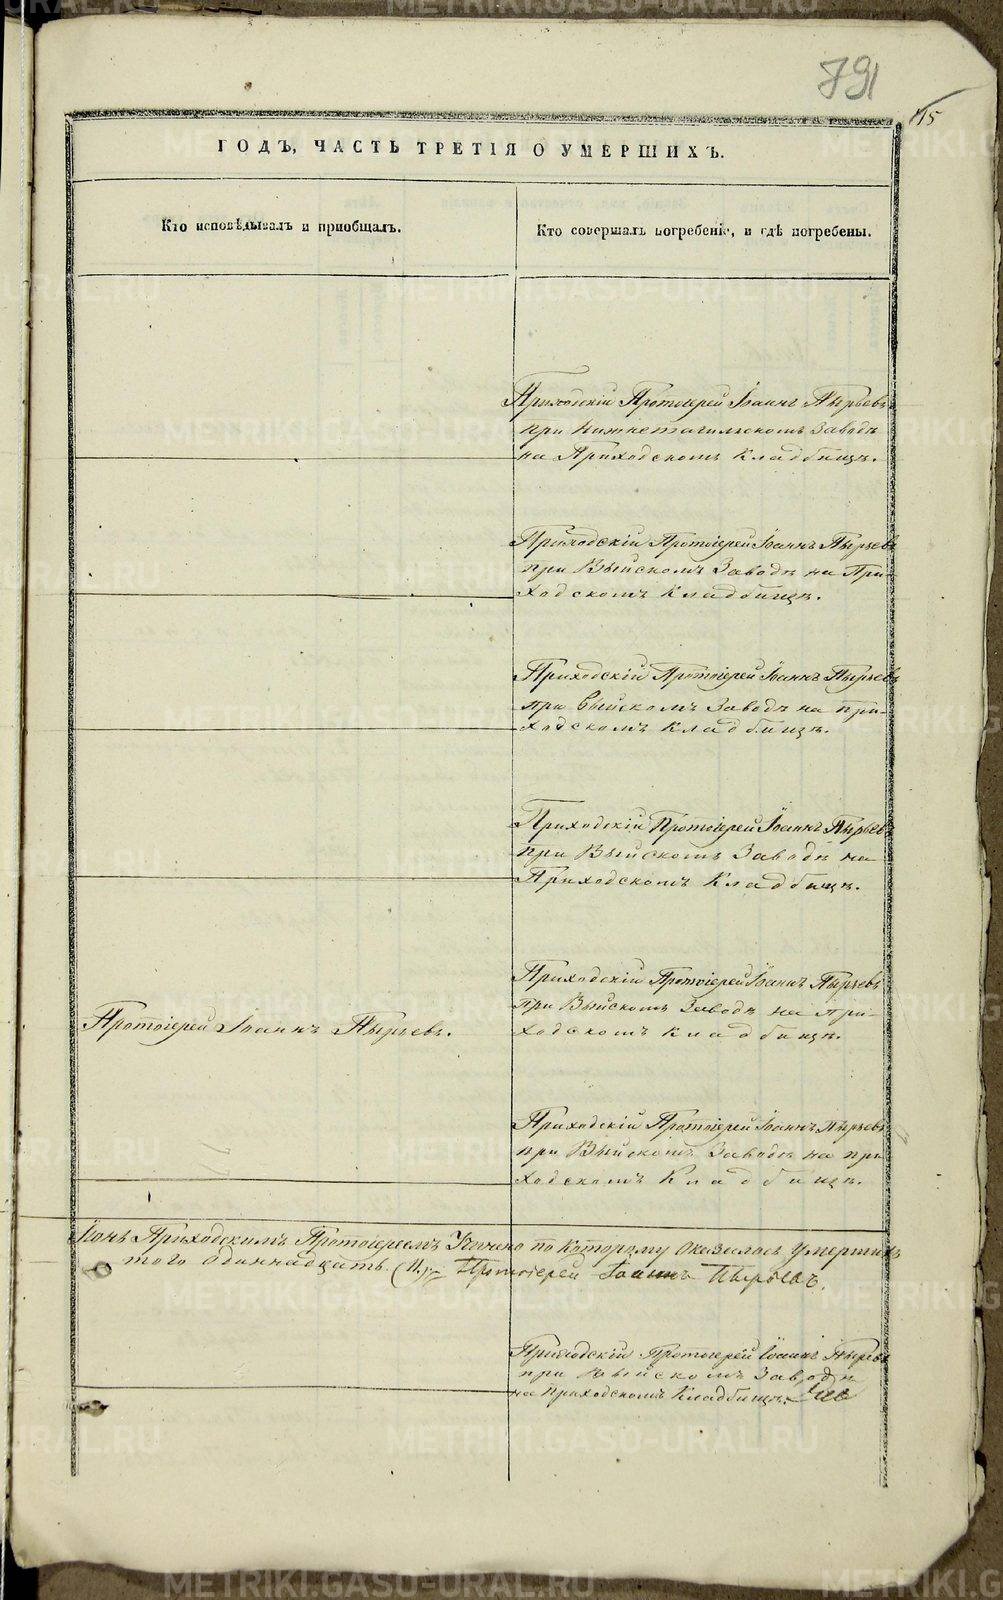 791
115
ГОДЪ, ЧАСТЬ ТРЕТІЯ О УМЕРШИХЪ.
Кто исповѣдывалъ и приобщалъ.
Кто совершалъ погребеніе, и гдѣ погребены.
Приходскій Протоіерей Іоаннъ Пырьевъ
при Нижнетагильскомъ Заводѣ
на Приходскомъ Кладбищѣ.
Приходскій Протоіерей Іоаннъ Пырьевъ
при Выйскомъ Заводѣ на При-
ходскомъ Кладбищѣ.
Приходскій Протоіерей Іоаннъ Пырьевъ
при Выйскомъ Заводѣ на при-
ходскомъ Кладбищѣ.
Приходскій Протоіерей Іоаннъ Пырьевъ
при Выйскомъ Заводѣ на
Приходскомъ Кладбищѣ.
Приходскій Протоіерей Іоаннъ Пырьевъ
при Выйскомъ Заводѣ на при-
ходскомъ кладбищѣ.
Протоіерей Іоаннъ Пырьевъ.
Приходскій Протоіерей Іоаннъ Пырьевъ
при Выйскомъ Заводѣ на при
ходскомъ Кладбищѣ.
Приходскимъ Протоіереемъ Учинено по Которому Оказалось Умершихъ
того одиннадцать (11.) Протоіерей Іоаннъ Пырьевъ.
Приходскій Протоіерей Іоаннъ Пырьевъ
при Выйскомъ Заводѣ
на Приходскомъ Кладбищѣ.
METRIKI.GASO-URAL.RU